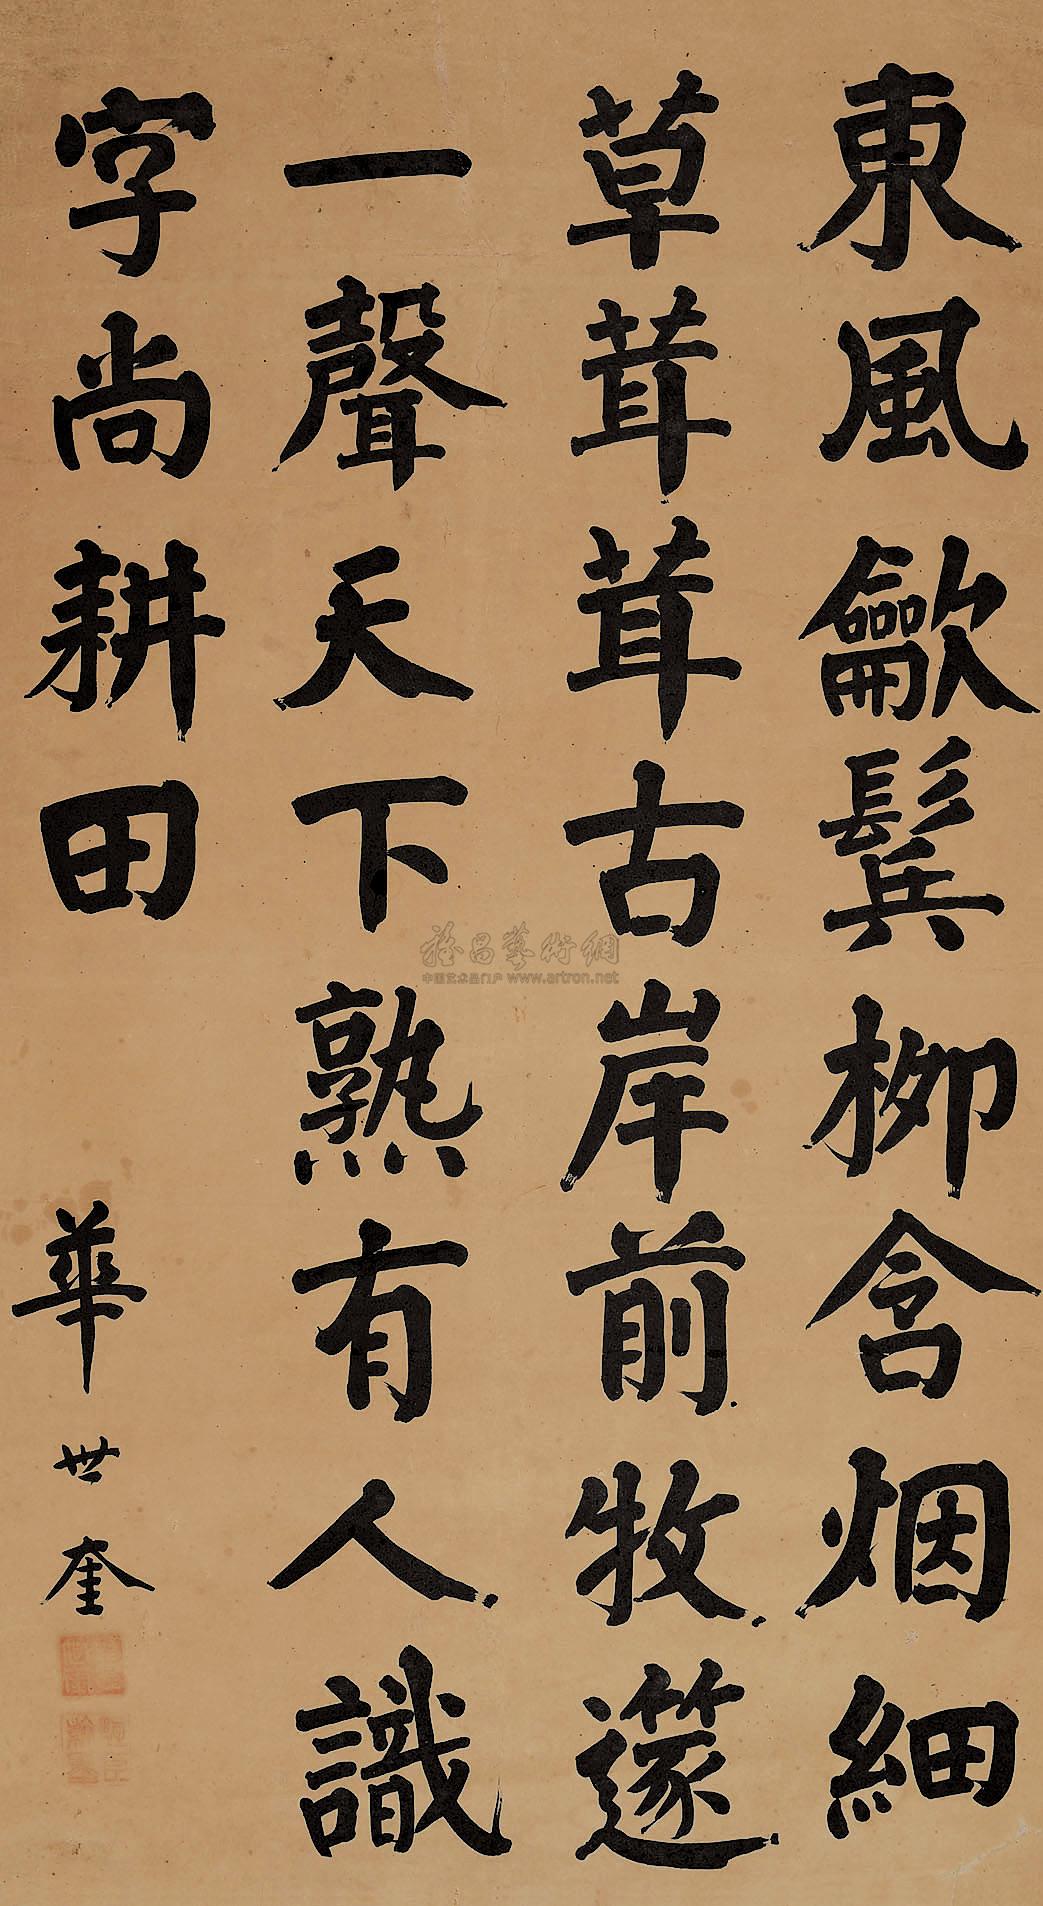 東風龡鬂柳含烟細
草茸茸古岸前牧篴
一聲天下熟有人識
字尚耕田
華世奎
雅昌藝術網
中国艺术品门户 www.artron.net